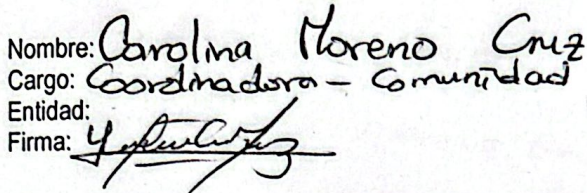 Nombre: Carolina Moreno Cruz
Cargo: Coordinadora - Comunidad
Entidad:
Firma: